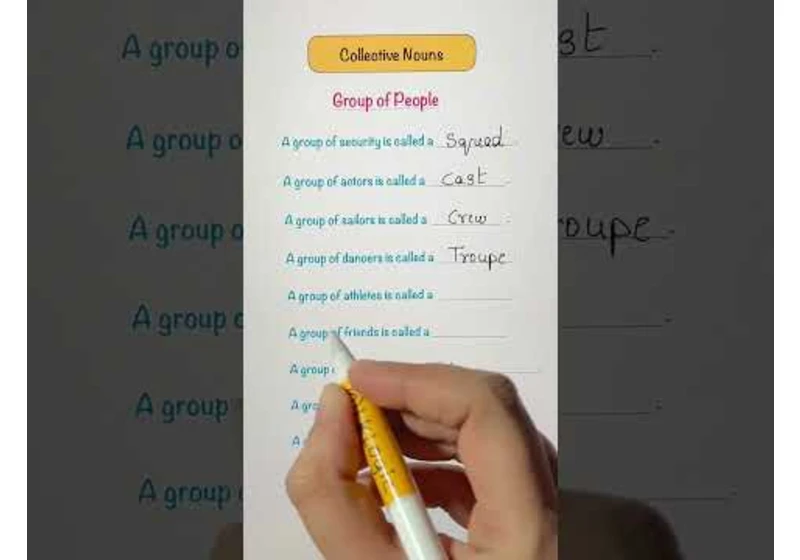 Collective Nouns
Group of People
A group of security is called a Squad
A group of actors is called a Cast
A group of sailors is called a Crew
A group of dancers is called a Troupe
A group of athletes is called a
A group of friends is called a
A group
A gro
A